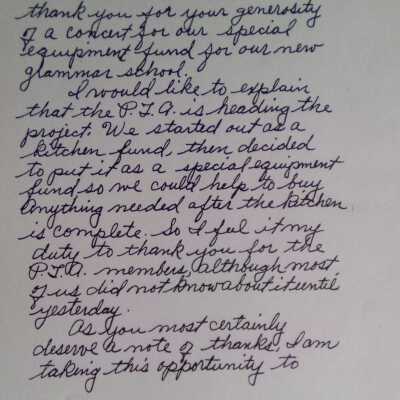 thank you for your generosity
of a concert for our special
equipment fund for our new
grammar school.
I would like to explain
that the P.T.A. is heading the
project. We started out as a
kitchen fund, then decided
to put it as a special equipment
fund so we could help to buy
anything needed after the kitchen
is complete. So I feel it my
duty to thank you for the
P.T.A. members, although most
of us did not know about it until
yesterday.
As you most certainly
deserve a note of thanks, I am
taking this opportunity to